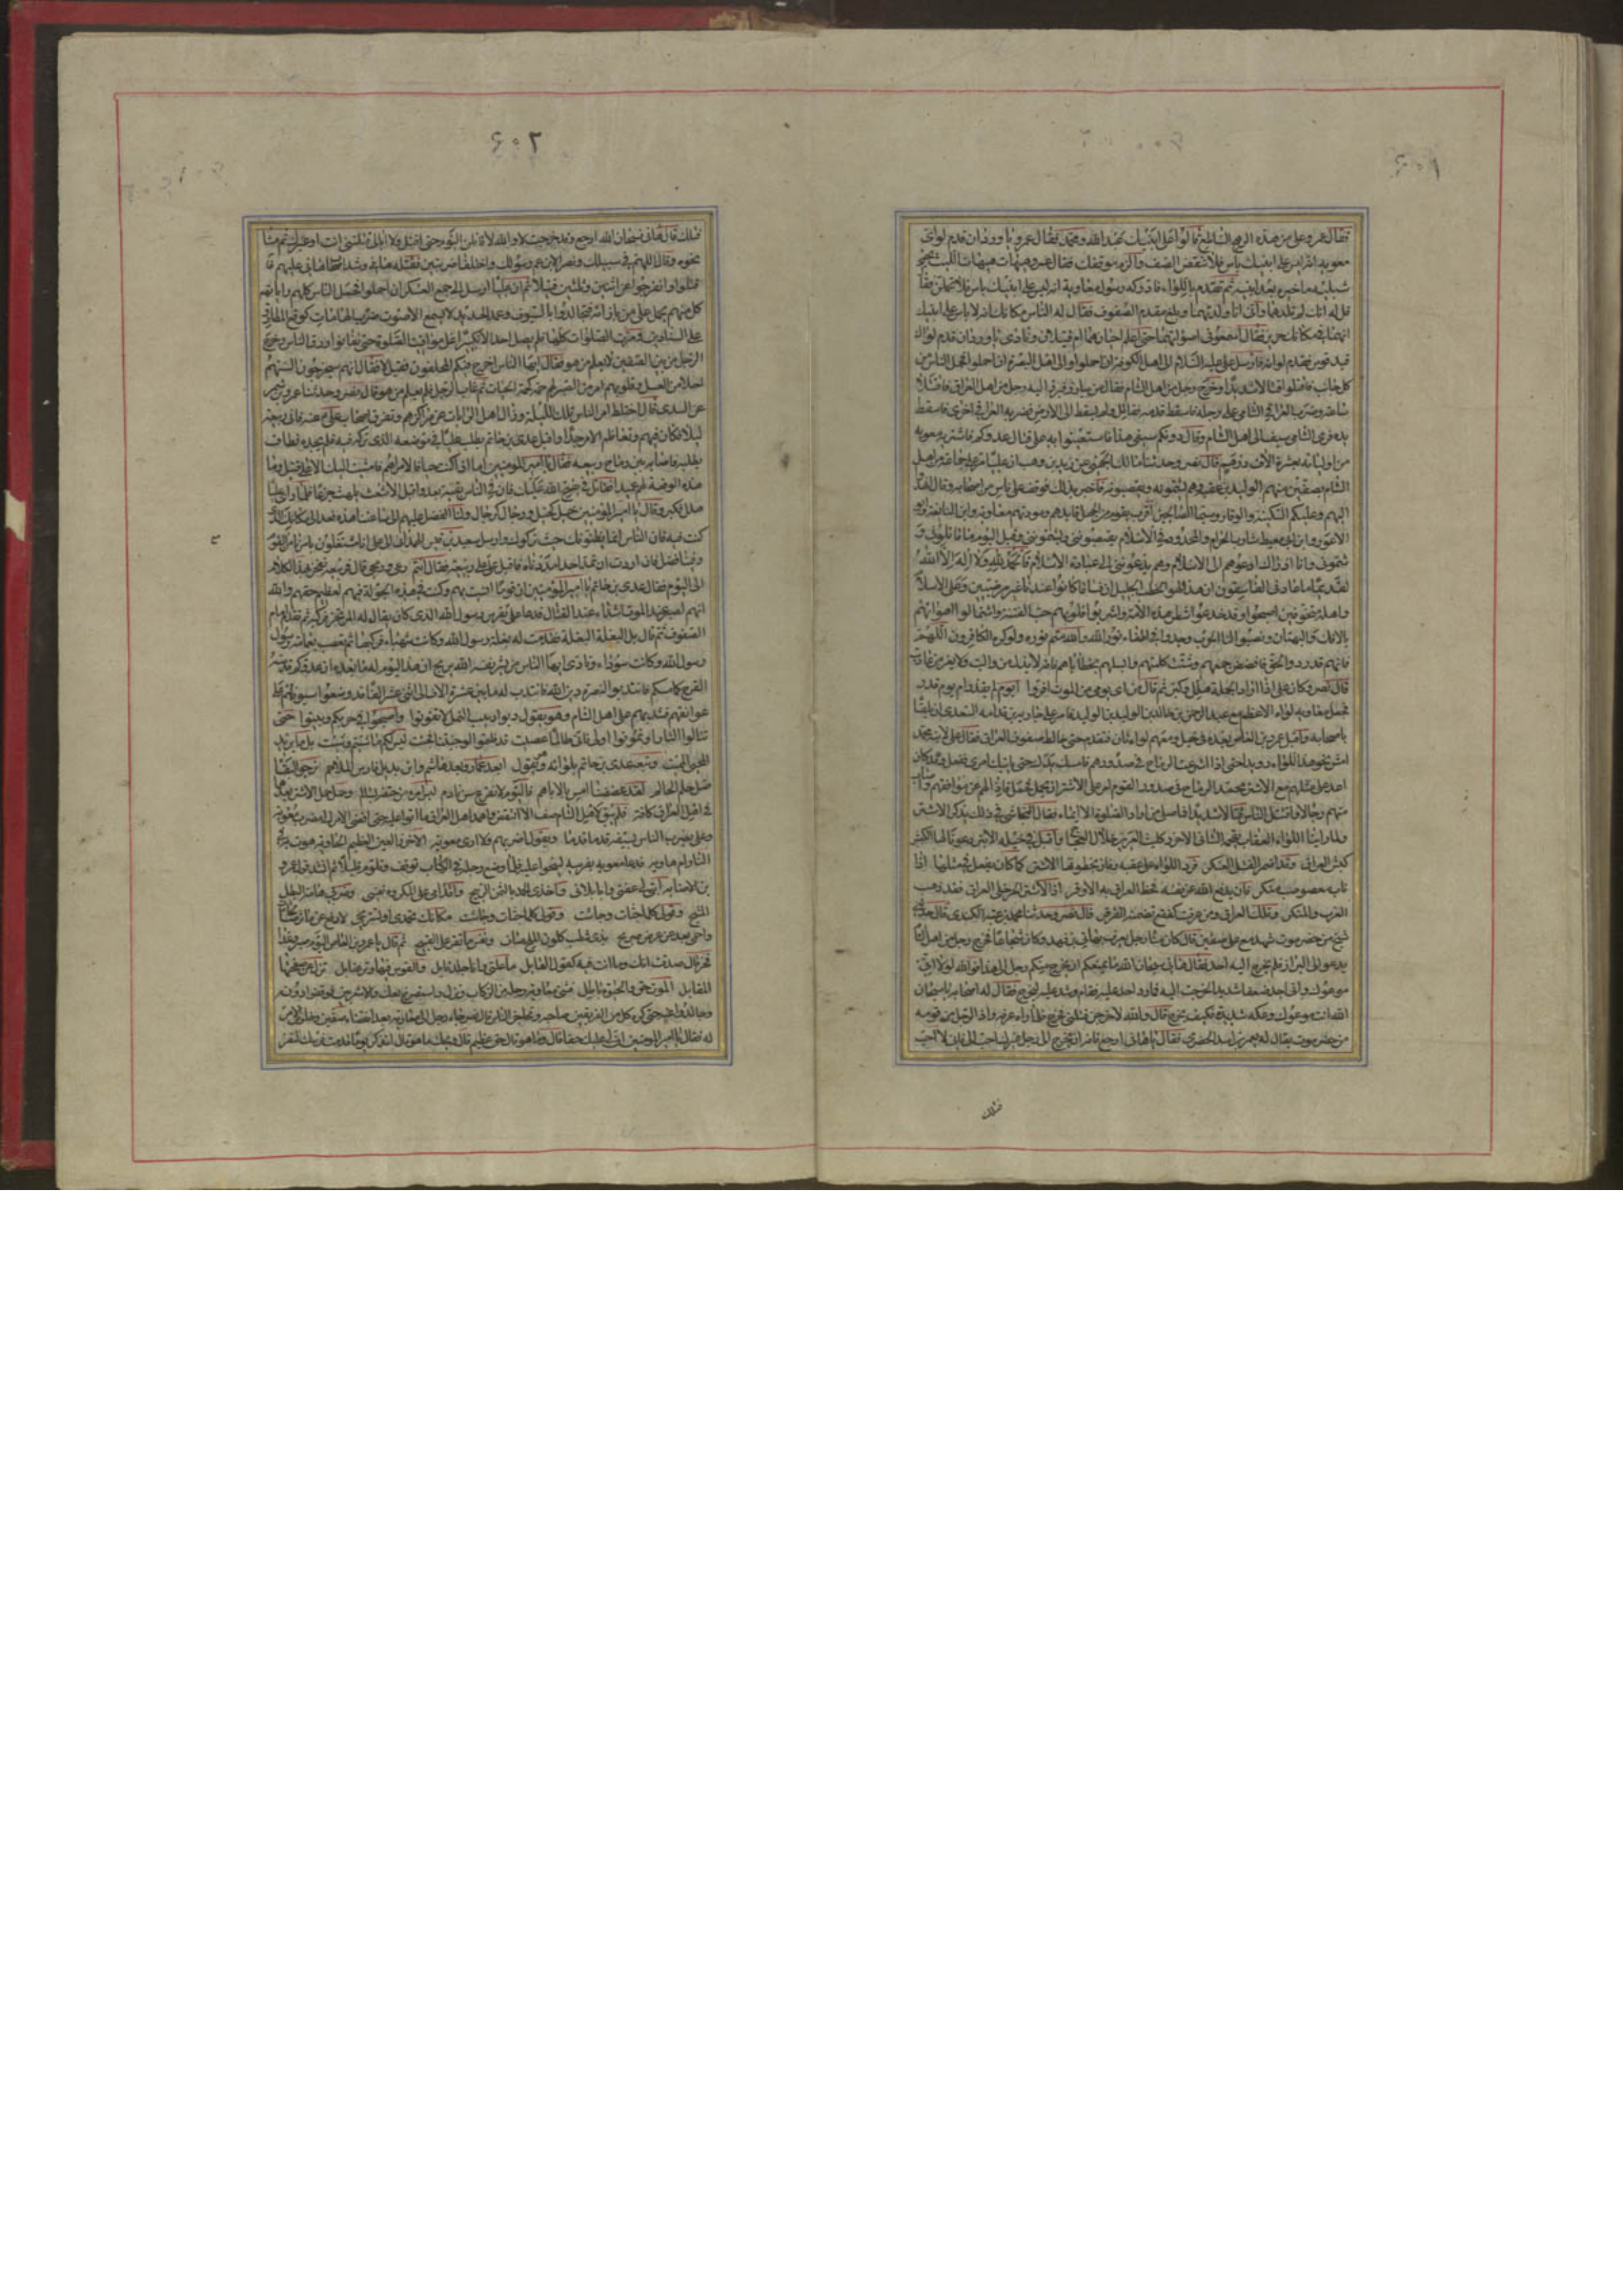 ٤٠١
فقال عمرو على من هذا الرهج الساطع قالوا على ابنيك عبد الله ومحمد فقال عمرو يا وردان قدم لوائي
معويه انه ليس على ابنيك باس فلا تنقض الصف والزم موقفك فقال عمرو هيهات هيهات الليث يحمي
شبليه ما خيره بعد ابنيه ثم تقدم باللواء فادركه رسول معاوية انه ليس على ابنيك باس فلا تحملن فقا
قل له انك لم تلدهما وانى انا ولدتهما وبلغ مقدم الصفوف فقال له الناس مكانك انه لا باس على ابنيك
انهما في مكان حريز فقال اسمعوني اصواتهما حتى اعلم احيان هما ام قتيلان ونادى يا وردان قدم لواك
قيد قوس فقدم لوائه فارسل علي عليه السلام الى اهل الكوفة ان احملوا والى اهل البصرة ان احملوا فحمل الناس من
كل جانب فاقتتلوا قتالا شديدا وخرج رجل من اهل الشام فقال من يبارز فبرز اليه رجل من اهل العراق فاقتتلا
ساعة وضرب العراقي الشامي على رجله فاسقط قدمه فقاتل ولم يسقط الى الارض فضربه العراقي اخرى فاسقط
يده فرمى الشامي سيفه الى اهل الشام وقال دونكم سيفي هذا فاستعينوا به على قتال عدوكم فاشتراه معويه
من اوليائه بعشرة الاف درهم قال نصر وحدثنا مالك الجهني عن زيد بن وهب ان عليا مر على جماعة من اهل
الشام بصفين منهم الوليد بن عقبه وهم يشتمونه ويقصبونه فاخبر بذلك فوقف على ناس من اصحابه وقال انهدوا
اليهم وعليكم السكينة والوقار وسيما الصالحين اقرب بقوم من الجهل قائدهم ومؤدبهم معاوية وابن النابغة وابو
الاعور وابن ابي معيط شارب الحرام والمحدود في الاسلام يقصبونني ويشتمونني وقبل اليوم ما قاتلوني و
شتموني وانا اذ ذاك ادعوهم الى الاسلام وهم يدعونني الى عبادة الاصنام فالحمد لله ولا اله الا الله
لقديما ما عاداني الفاسقون ان هذا لهو الخطب الجليل ان فساقا كانوا عندنا غير مرضيين وعلى الاسلام
واهله متخوفين اصبحوا وقد خدعوا شطر هذه الامة واشربوا قلوبهم حب الفتنة واستمالوا اهوائهم
بالافك والبهتان ونصبوا لنا الحرب وجدوا في اطفاء نور الله والله متم نوره ولو كره الكافرون اللهم
فانهم قد ردوا الحق فافضض جمعهم وشتت كلمتهم وابسلهم بخطاياهم فانه لا يذل من واليت ولا يعز من عاديت
قال نصر وكان علي اذا اراد الحملة هلل وكبر ثم قال من اي يومي من الموت افر ايوم لم يقدر ام يوم قدر
فجعل معاويه لواءه الاعظم مع عبد الرحمن بن خالد بن الوليد
باصحابه واقبل عمرو بن العاص بعده في خيل ومعهم لواء ثان فتقدم حتى خالط صفوف العراق فقال علي لابنه محمد
امش نحو هذا اللواء رويدا حتى اذا اشرعت الرماح في صدورهم فامسك يدك حتى ياتيك امري ففعل وقد كان
اعد علي مثلهم مع الاشتر
منهم رجالا واقتتل الناس قتالا شديدا فما صلى من اراد الصلوة الا ايماء فقال النجاشي في ذلك يذكر الاشتر
ولما راينا اللواء العقاب يقحمه الشاني الاخزر كليث العرين خلال العجاج واقبل في خيله الابتر دعونا لها الكبش
كبش العراق وقد اضمر الفشل العسكر فرد اللواء على عقبه وفاز بخطوتها الاشتر كما كان يفعل في مثلها اذا
ناب معصوصب منكر فان يدفع الله عن نفسه فحظ العراق به الاوفر اذا الاشتر الخير خلى العراق فقد ذهب
العرف والمنكر وتلك العراق ومن عرفت كفقع تضمنه القرقر قال نصر وحدثنا محمد بن عتبة الكندي قال حدثني
شيخ من حضرموت شهد مع علي صفين قال كان منا رجل يعرف بهاني بن فهد وكان شجاعا فخرج رجل من اهل الشام
يدعو الى البراز فلم يخرج اليه احد فقال هاني سبحان الله ما يمنعكم ان يخرج منكم رجل الى هذا فوالله لولا انى
موعوك واني اجد ضعفا شديدا لخرجت اليه فما رد احد عليه فقام وشد عليه ليخرج فقال له اصحابه يا سبحان
الله انت موعوك وعكه شديدة فكيف تخرج قال والله لاخرجن ولو قتلني فخرج فلما راه عرفه واذا الرجل من قومه
من حضرموت يقال له يعمر بن اسد الحضرمي فقال يا هاني ارجع فانه ان يخرج الي رجل غيرك احب الي فاني لا احب
قتلك
٤٠٢
قتلك قال هاني سبحان الله ارجع وقد خرجت لا والله لاقاتلن اليوم حتى اقتل ولا ابالي قتلتني انت او غيرك ثم مشا
نحوه وقال اللهم في سبيلك ونصرا لابن عم رسولك واختلفا ضربتين فقتله هاني وشد اصحابه عليهم فا
قتتلوا وانفرجوا عن اثنين وثلثين قتيلا ثم ان عليا ارسل الى جميع العسكر ان احملوا فحمل الناس كلهم على راياتهم
كل منهم يحمل على من بازائه فتجالدوا بالسيوف وعمد الحديد لا يسمع الا صوت ضرب الهامات كوقع المطارق
على السنادين ومرت الصلوات كلها فلم يصل احد الا تكبيرا عند مواقيت الصلوة حتى تفانوا ورق الناس وخرج
الرجل من بين الصفين لا يعلم من هو فقال ايها الناس اخرج فيكم المحلقون فقيل لا فقال انهم سيخرجون السنتهم
احلى من العسل وقلوبهم امر من الصبر لهم حمة كحمة الحيات ثم غاب الرجل فلم يعلم من هو قال نصر وحدثنا عمرو بن شمر
عن السدي قال اختلط امر الناس تلك الليلة وزال اهل الرايات عن مراكزهم وتفرق اصحاب علي عنه فاتى ربيعة
ليلا فكان فيهم وتعاظم الامر جدا واقبل عدي بن حاتم يطلب عليا في موضعه الذي تركه فيه فلم يجده فطاف
يطلبه فاصابه بين رماح ربيعه فقال يا امير المؤمنين اما اذ كنت حيا فالامر امم ما مشيت اليك الا على قتيل وما
كنت فيه فان الناس انما يظنونك حيث تركوك وارسل سعيد بن قيس الهمداني الى علي انا مشتغلون بامرنا مع القوم
وفينا فضل فان اردت ان نمد احدا امددناه فاقبل علي على ربيعة فقال انتم درعي ورمحي قال فربيعه تفخر بهذا الكلام
الى اليوم فقال عدي بن حاتم يا امير المؤمنين ان قوما انست بهم وكنت في هذه الجولة فيهم لعظيم حقهم والله
انهم لصبر عند الموت اشداء عند القتال فدعا علي بفرس رسول الله الذي كان يقال له المرتجز فركبه ثم تقدم امام
الصفوف ثم قال بل البغلة البغلة فقدمت له بغلة رسول الله وكانت شهباء فركبها ثم تعصب بعمامة رسول
رسول الله وكانت سوداء ونادى ايها الناس من يشري نفسه الله يربح ان هذا اليوم له ما بعده ان عدوكم قد مسه
القرح كما مسكم فانتدبوا لنصرة دين الله فانتدب له ما بين عشرة الاف الى اثنى عشر الفا قد وضعوا سيوفهم على
عواتقهم فشد بهم على اهل الشام وهو يقول دبوا دبيب النمل لا تفوتوا واصبحوا في حربكم وبيتوا حتى
تنالوا الثار او تموتوا اولا فاني طالما عصيت قد قلتم لو جئتنا فجئت ليس لكم ما شئتم وشئت بل ما يريد
المحيي المميت وتبعه عدي بن حاتم بلوائه وهو يقول ابعد عمار وبعد هاشم وابن بديل فارس الملاحم نرجو البقا
مثل حلم الحالم لقد عضضنا امس بالاباهم فاليوم لا نقرع سن نادم ليس امرؤ من حتفه بسالم وحمل الاشتر بعدهما
في اهل العراق كافة فلم يبق لاهل الشام صف الا انتقض واهمد اهل العراق ما اتوا عليه حتى افضى الامر الى مضرب معويه
وعلي يضرب الناس بسيفه قدما قدما ويقول اضربهم ولا ارى معويه الاخزر العين العظيم الحاويه هوت به في
النار ام هاويه فدعا معويه بفرسه لينجو عليه فلما وضع رجله في الركاب توقف وتلوم قليلا ثم انشد قول عمرو
بن الاطنابه ابت لي عفتي وابى بلائي واخذي الحمد بالثمن الربيح واقدامي على المكروه نفسي وضربي هامة البطل
المشيح وقولي كلما جشات وجاشت مكانك تحمدي او تستريحي لادفع عن مآثر صالحات
واحمي بعد عن عرض صحيح بذي شطب كلون الملح صاف ونفس ما تقر على القبيح ثم قال يا عمرو بن العاص اليوم صبر وغدا
فخر قال صدقت انك وما انت فيه كقول القايل ما علتي وانا جلد نابل والقوس فيها وتر عنابل تزل عن صفحتها
المعابل الموت حق والحيوة باطل فثنى معاويه رجله من الركاب ونزل واستصرخ بعك والاشعريين فوقفوا دونه
وجالدوا عنه حتى كره كل من الفريقين صاحبه وتحاجز الناس قال نصر جاء رجل الى معاويه بعد انقضاء صفين وخلوص الامر
له فقال يا امير المؤمنين ان لي عليك حقا قال وما هو قال حق عظيم قال ويحك ما هو قال اتذكر يوما قدمت فرسك لتفر